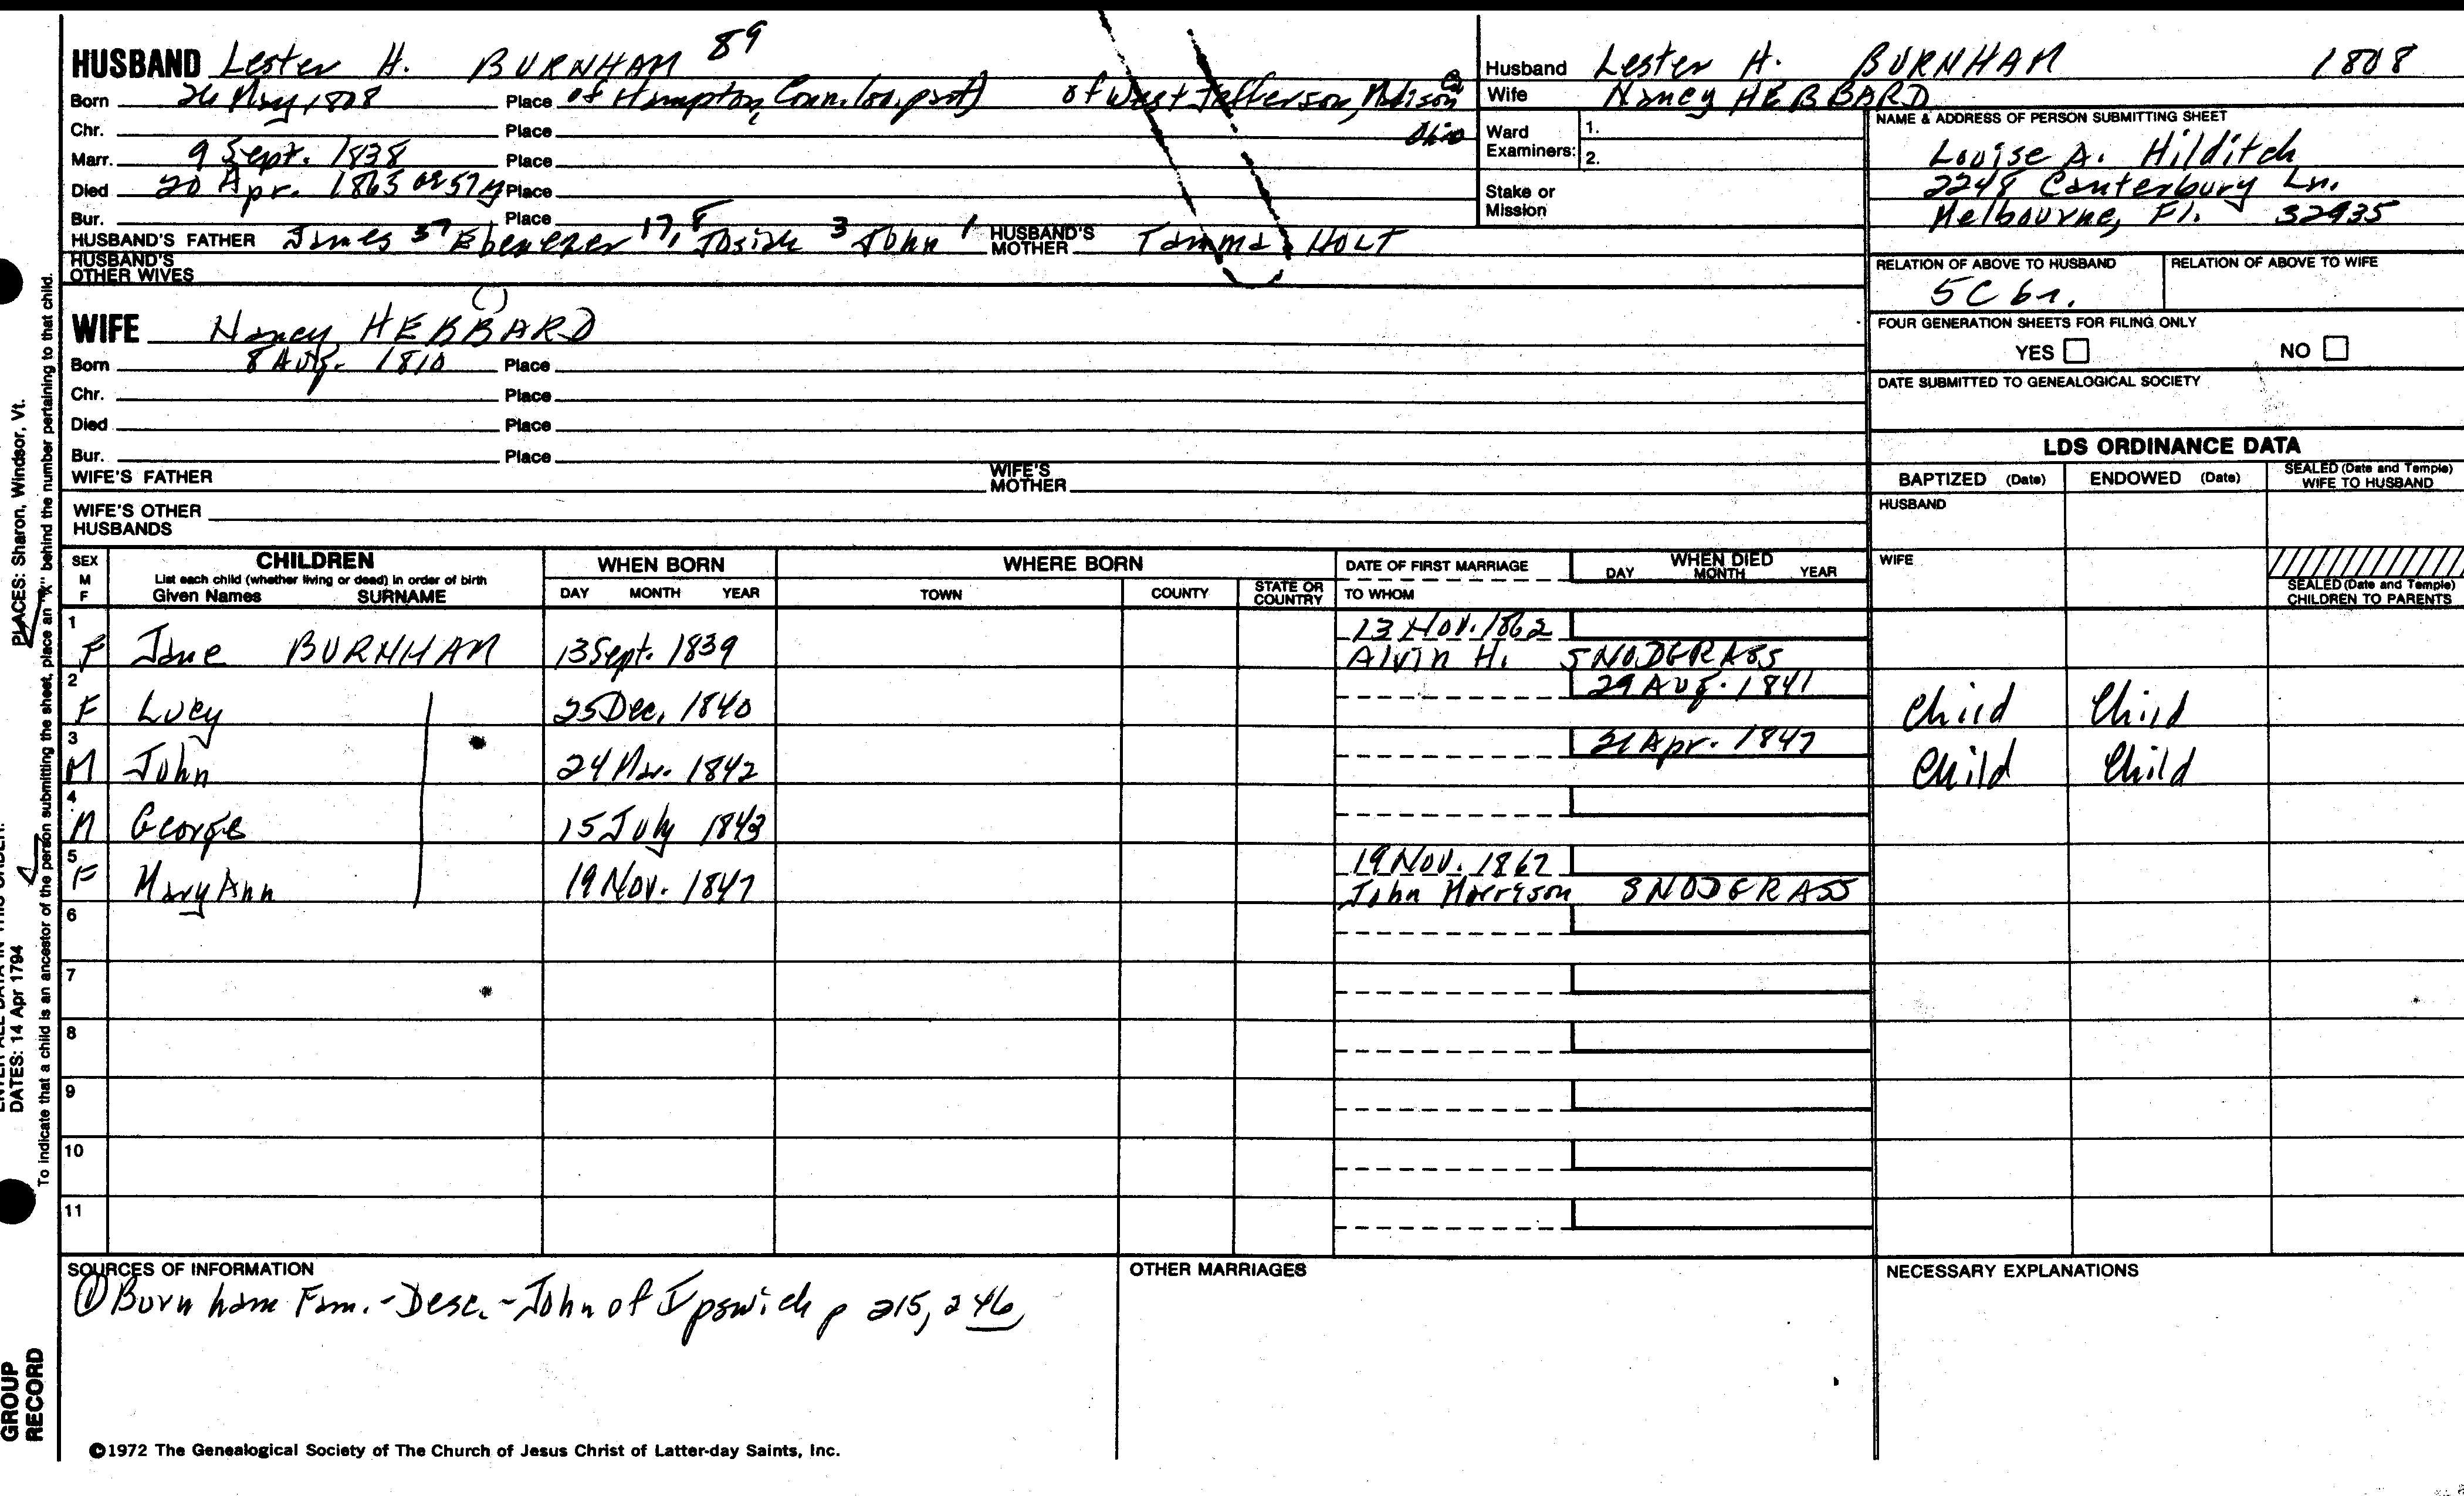 HUSBAND Lester H. BURNHAM 89
Born 26 May 1808 Place of Hampton, Conn. of West Jefferson, Madison Co
Ohio
Chr. Place
Marr. 9 Sept. 1838 Place
Died 20 Apr. 1865 ae 57y Place
Bur. Place
HUSBAND'S FATHER James 37 Ebenezer 17, 8 Josiah 3 John 1 HUSBAND'S MOTHER Tamma HOLT
HUSBAND'S OTHER WIVES
WIFE Nancy HEBBARD
( )
Born 8 Aug. 1810 Place
Chr. Place
Died Place
Bur. Place
WIFE'S FATHER WIFE'S MOTHER
WIFE'S OTHER HUSBANDS
Husband Lester H. BURNHAM 1808
Wife Nancy HEBBARD
Ward Examiners: 1.
2.
Stake or Mission
NAME & ADDRESS OF PERSON SUBMITTING SHEET
Louise A. Hilditch
2248 Canterbury Ln.
Melbourne, Fl. 32935
RELATION OF ABOVE TO HUSBAND RELATION OF ABOVE TO WIFE
5C br.
FOUR GENERATION SHEETS FOR FILING ONLY
YES NO
DATE SUBMITTED TO GENEALOGICAL SOCIETY
LDS ORDINANCE DATA
BAPTIZED (Date) ENDOWED (Date) SEALED (Date and Temple) WIFE TO HUSBAND
HUSBAND
WIFE
SEALED (Date and Temple) CHILDREN TO PARENTS
SEX M F CHILDREN WHEN BORN WHERE BORN DATE OF FIRST MARRIAGE WHEN DIED
List each child (whether living or dead) in order of birth
Given Names SURNAME DAY MONTH YEAR TOWN COUNTY STATE OR COUNTRY TO WHOM DAY MONTH YEAR
1 13 Nov. 1862
F Jane BURNHAM 13 Sept. 1839 Alvin H. SNODGRASS
2 29 Aug. 1841
F Lucy 25 Dec. 1840 Child Child
3 21 Apr. 1847
M John 24 Mar. 1842 Child Child
4
M George 15 July 1843
5 19 Nov. 1867
F Mary Ann 19 Nov. 1847 John Morrison SNODGRASS
6
7
8
9
10
11
SOURCES OF INFORMATION OTHER MARRIAGES NECESSARY EXPLANATIONS
① Burnham Fam. - Desc. - John of Ipswich p 215, 246
©1972 The Genealogical Society of The Church of Jesus Christ of Latter-day Saints, Inc.
PLACES: Sharon, Windsor, Vt.
DATES: 14 Apr 1794
To indicate that a child is an ancestor of the person submitting the sheet, place an "X" behind the number pertaining to that child.
GROUP
RECORD